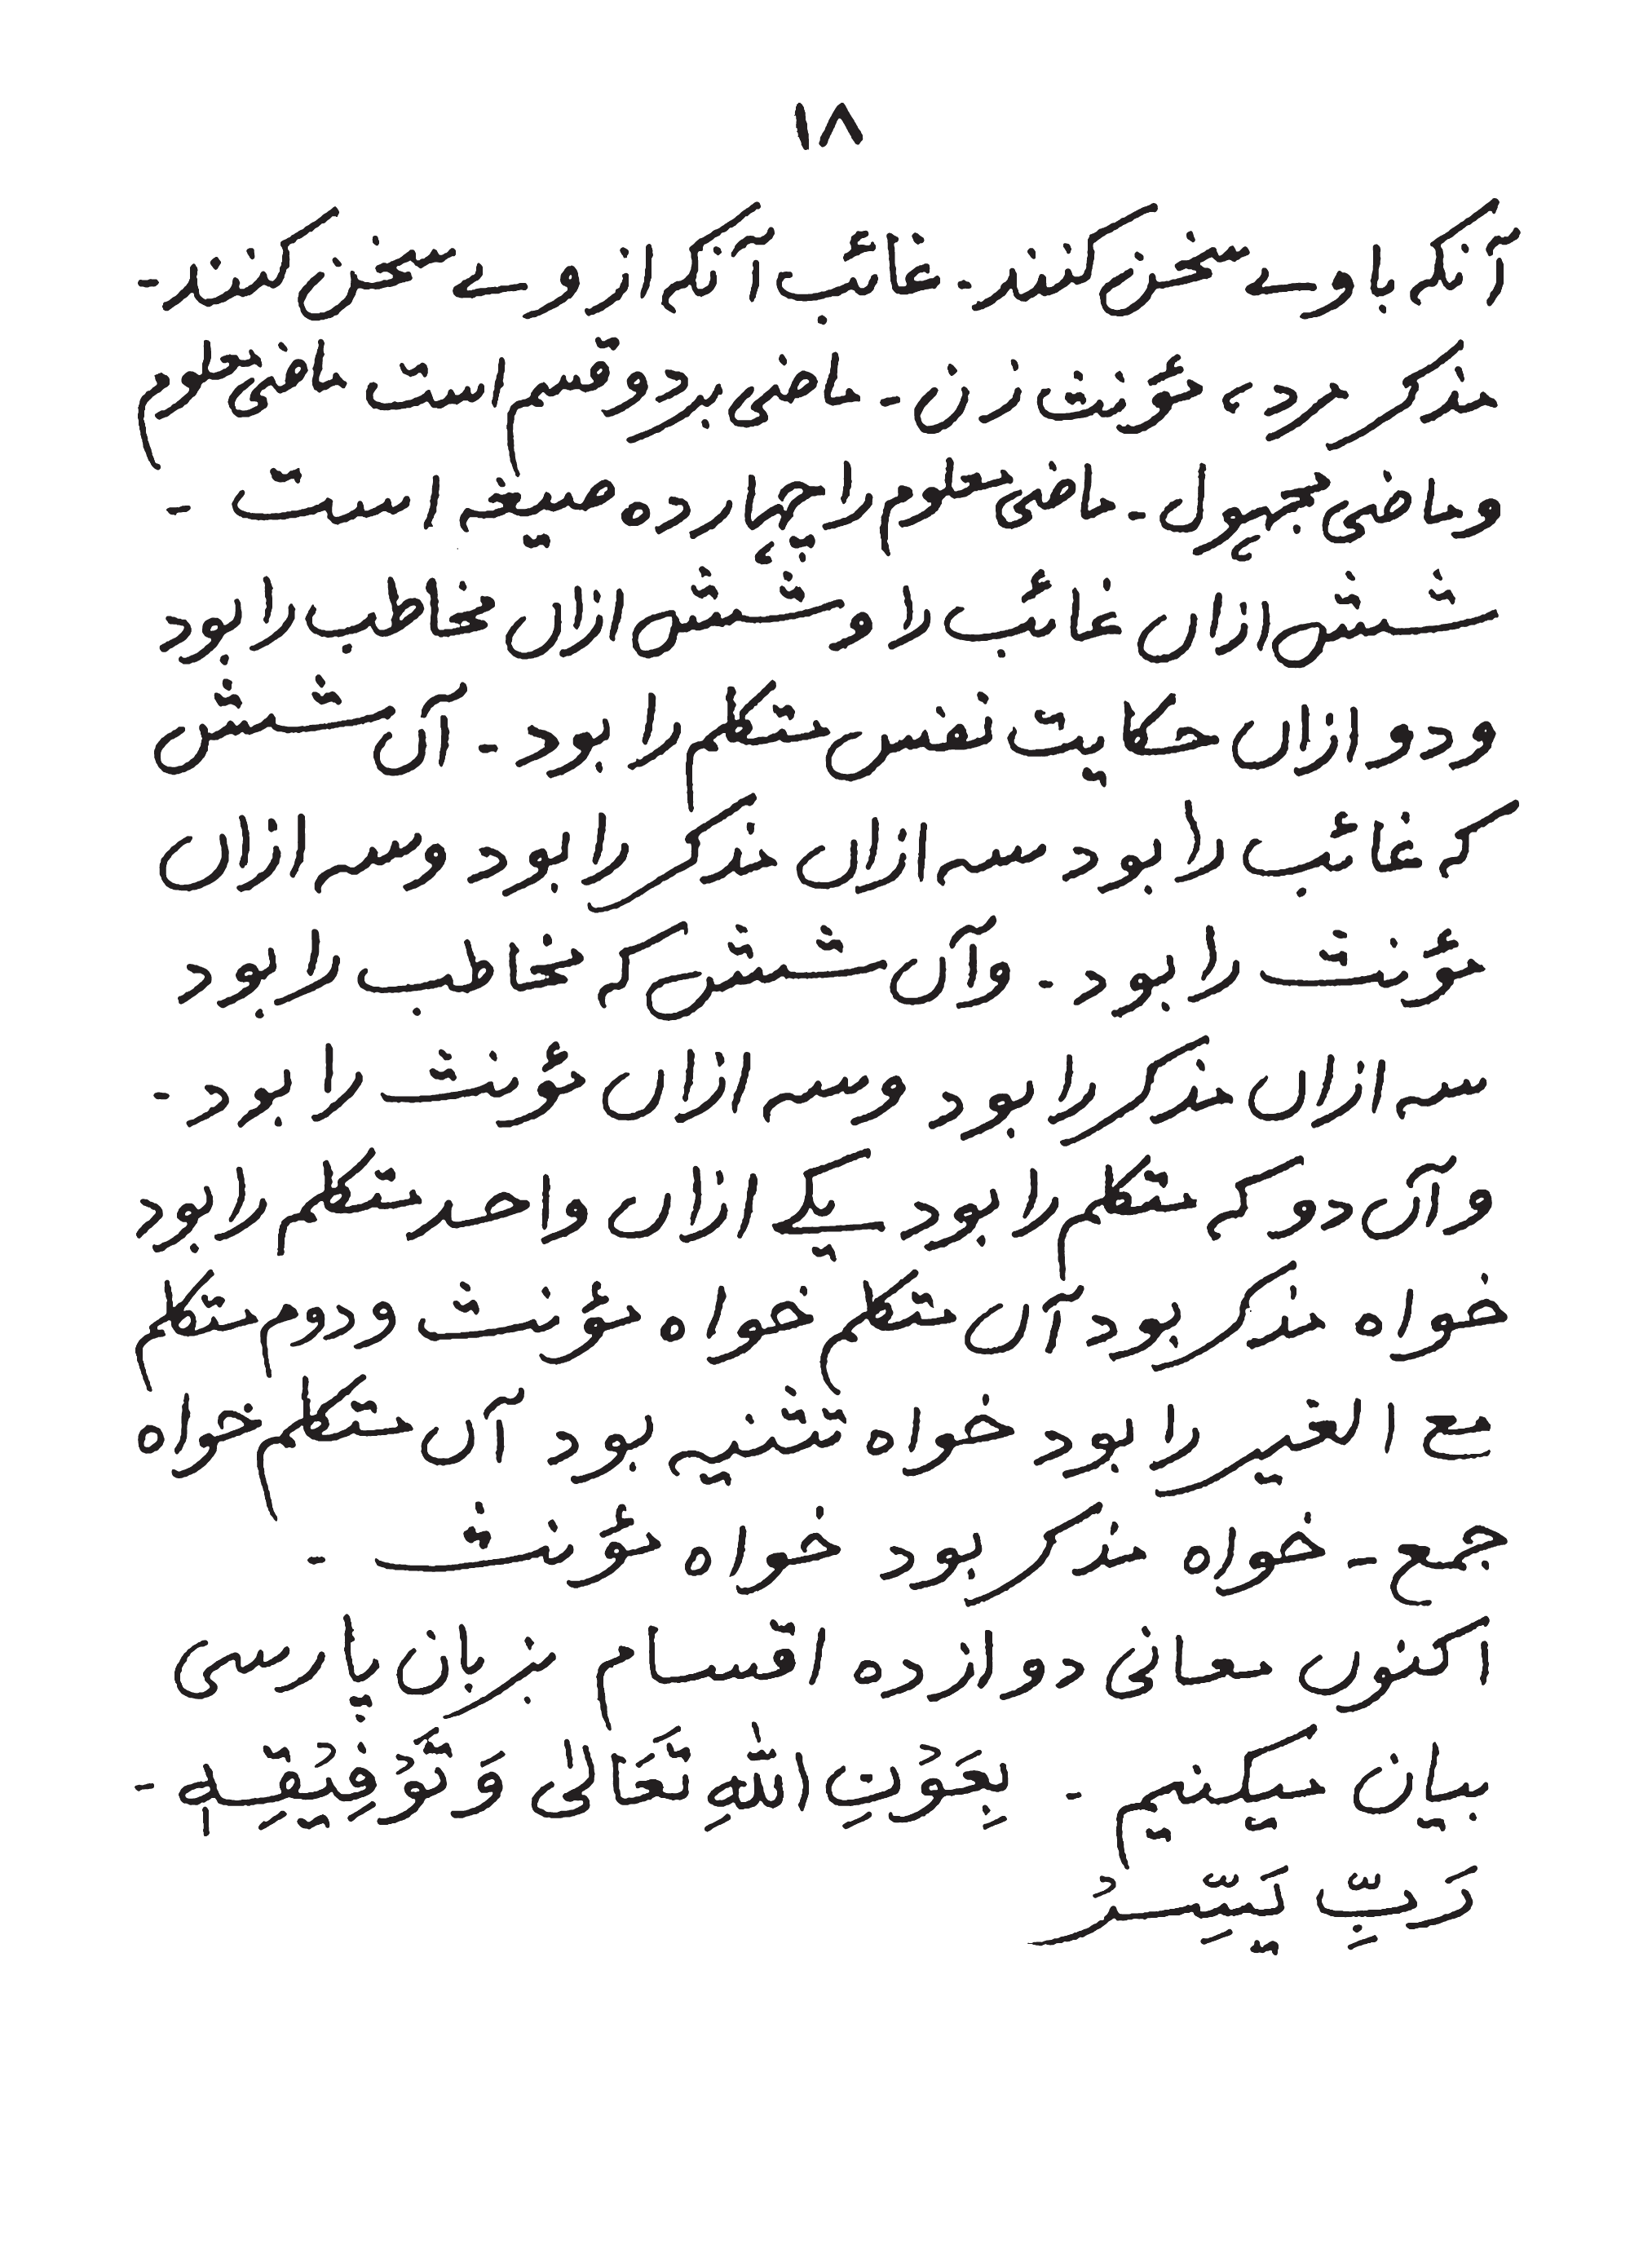 ۱۸
آنکہ با وے سخن کنند۔ غائب آنکہ از وے سخن کنند۔
مذکر مرد، مؤنث زن۔ ماضی بر دو قسم است ماضی معلوم
و ماضی مجہول۔ ماضی معلوم را چہاردہ صیغہ است ۔
شش ازاں غائب را و شش ازاں مخاطب را بود
و دو ازاں حکایت نفس متکلم را بود ۔ آں شش
کہ غائب را بود سہ ازاں مذکر را بود و سہ ازاں
مؤنث را بود ۔ و آں شش کہ مخاطب را بود
سہ ازاں مذکر را بود و سہ ازاں مؤنث را بود ۔
و آں دو کہ متکلم را بود یکے ازاں واحد متکلم را بود
خواہ مذکر بود آں متکلم خواہ مؤنث و دوم متکلم
مع الغیر را بود خواہ تثنیہ بود آں متکلم خواہ
جمع ۔ خواہ مذکر بود خواہ مؤنث ۔
اکنوں معانی دوازدہ اقسام بزبان پارسی
بیان میکنیم ۔ بِعَوْنِ اللّٰهِ تَعَالٰی وَ تَوْفِیْقِهٖ ۔
رَبِّ یَسِّرْ